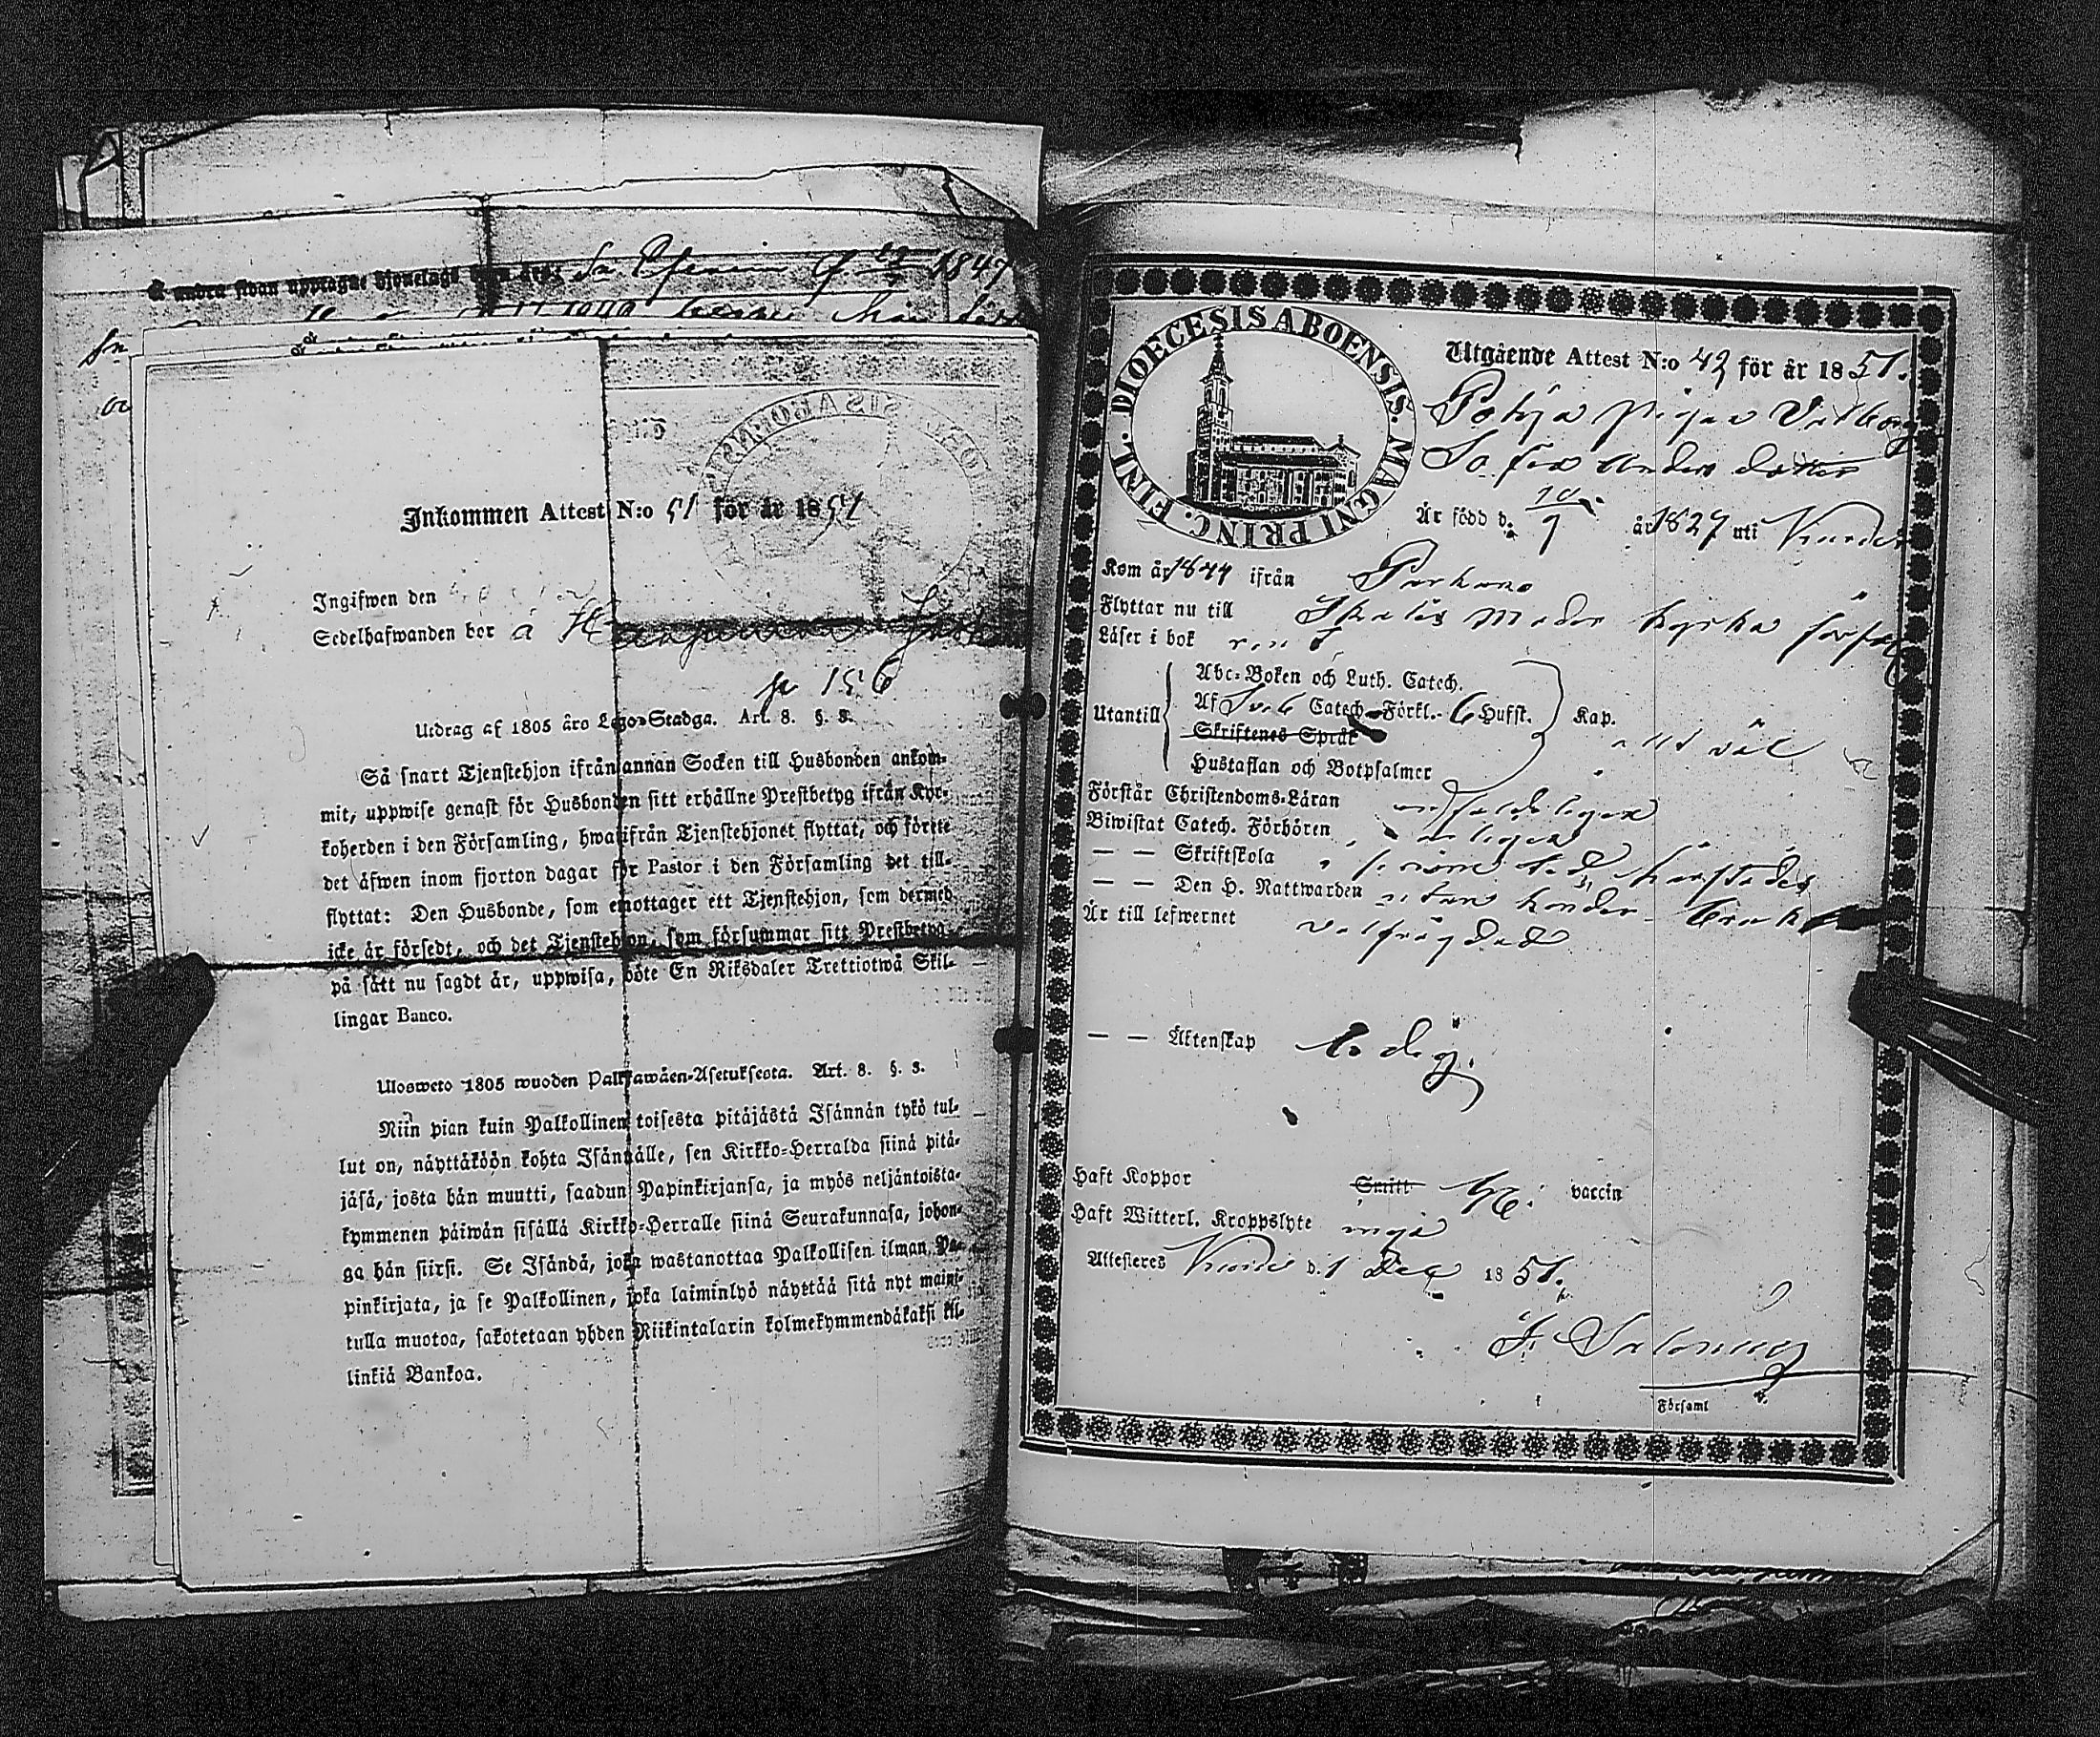 å andra sidan upptagne hjonelags 1847
Inkommen Attest N:o 51 för år 1851
Ingifwen den
Sedelhafwanden bor å
p 156
Utdrag af 1805 års Lego-Stadga. Art. 8. §. 3.
Så snart Tjenstehjon ifrån annan Socken till Husbonden ankom-
mit, uppwise genast för Husbonden sitt erhållne Prestbetyg ifrån Kyr-
koherden i den Församling, hwarifrån Tjenstehjonet flyttat, och förete
det äfwen inom fjorton dagar för Pastor i den Församling det till-
flyttat: Den Husbonde, som emottager ett Tjenstehjon, som dermed
icke är försedt, och det Tjenstehjon, som försummar sitt Prestbetyg
på sätt nu sagdt är, uppwisa, böte En Riksdaler Trettiotwå Skil-
lingar Banco.
Ulosweto 1805 wuoden Palkkawäen-Asetuksesta. Art. 8. §. 3.
Niin pian kuin Palkollinen toisesta pitäjästä Isännän tykö tul-
lut on, näyttäköön kohta Isännälle, sen Kirkko-Herralda siinä pitä-
jäsä, josta hän muutti, saadun Papinkirjansa, ja myös neljäntoista-
kymmenen päiwän sisällä Kirkko-Herralle siinä Seurakunnasa, johon-
ga hän siirsi. Se Isändä, joka wastanottaa Palkollisen ilman Pa-
pinkirjata, ja se Palkollinen, joka laiminlyö näyttää sitä nyt maini-
tulla muotoa, sakotetaan yhden Riikintalarin kolmekymmendäkaksi kil-
linkiä Bankoa.
DIOECESIS ABOENSIS. MAGNI PRINC. FINL.
Utgående Attest N:o 42 för år 1851.
Pohja pigan Vilborg
Sofia Anders dotter
Är född d. 10/9 år 1827 uti
Kom år 1844 ifrån Parkano
Flyttar nu till Ikalis Moder kyrko församl
Läser i bok
Utantill
Abc-Boken och Luth. Catech.
Af Sveb Catech-Förkl.- 6 Hufst. Kap.
Skriftenes Språk
väl
Hustaflan och Botpsalmer
Förstår Christendoms-Läran enfaldigare
Biwistat Catech. Förhören
— — Skriftskola
— — Den H. Nattwarden utan hinder
Är till lefwernet välfrägdad
— — Äktenskap ledig.
Haft Koppor Smitt vaccin
Haft Witterl. Kroppslyte inga
Attesteres d. 1 Dec 1851.
Församl